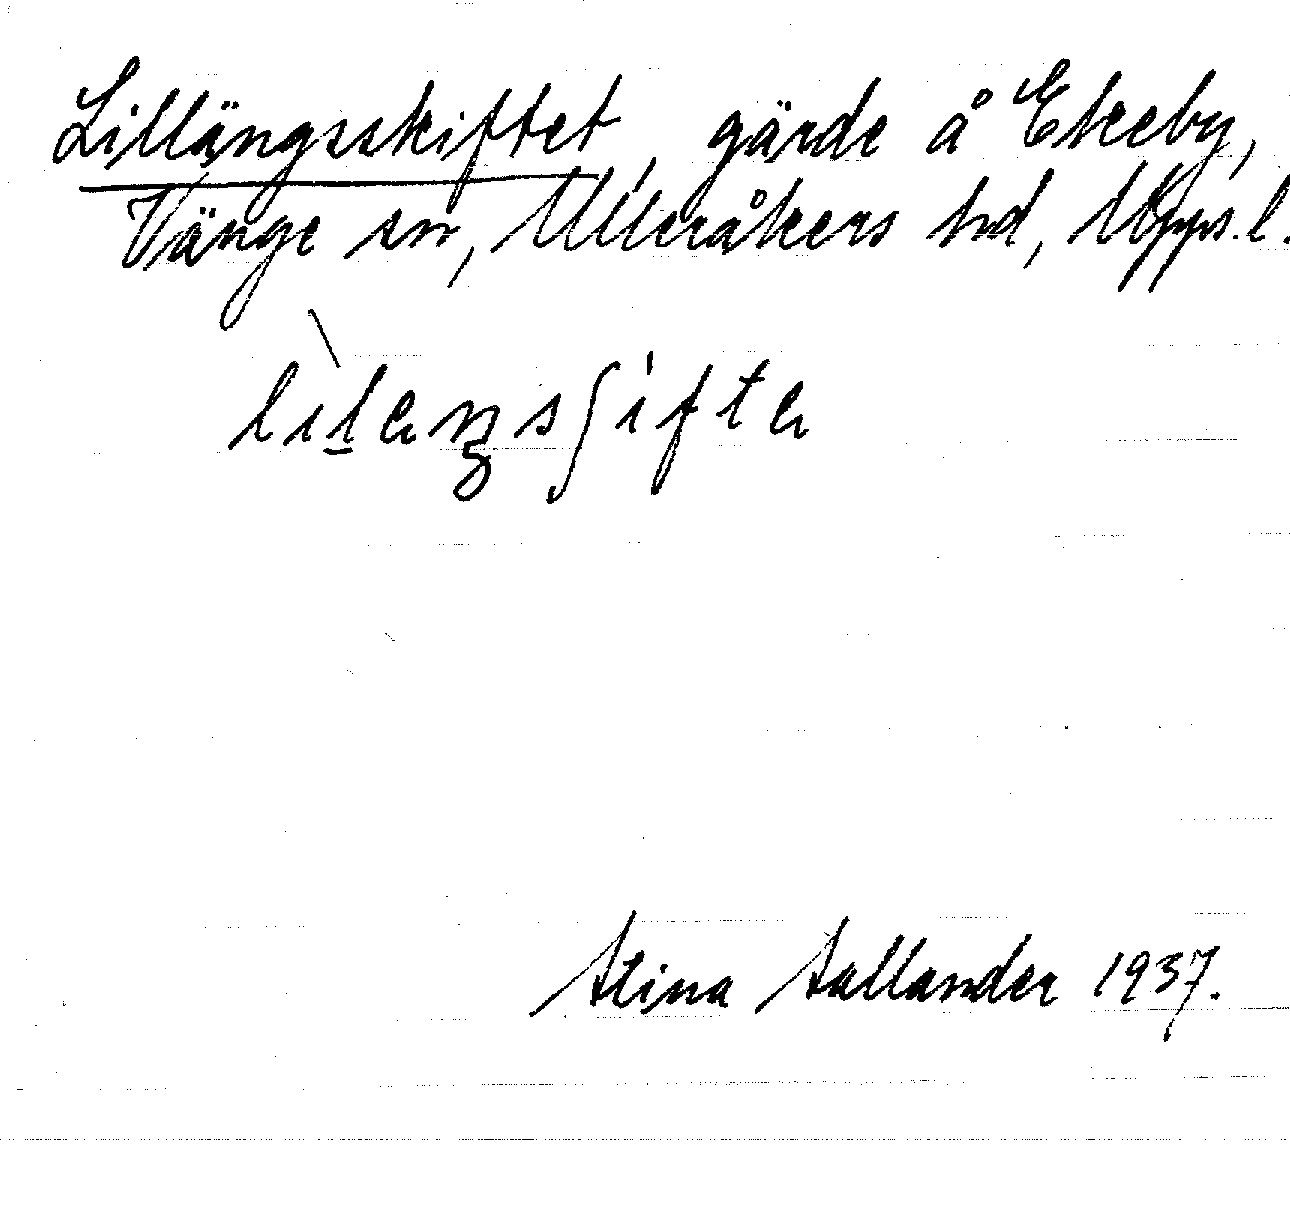 Lillängsskiftet, gärde å Ekeby,
Vänge sn, Ulleråkers hd, Upps. l.
Stina Sallander 1937.